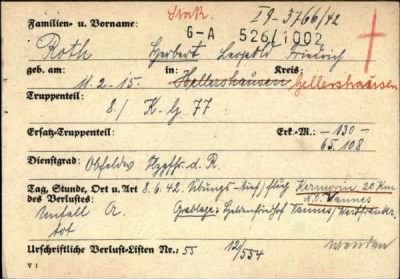 Stak. I 9-3766/42
Familien- u. Vorname: G-A 526/1002
Roth Herbert Leopold Friedrich
geb. am: in: Kreis:
11. 2. 15. Hellershausen Gellershausen
Truppenteil:
8./ K. G. 77
Ersatz-Truppenteil: Erk.-M.: -130-
65108
Dienstgrad: Obfeldw. d. R.
Tag, Stunde, Ort u. Art 8. 6. 42. Übungs-tief/flug Kermorin 20 km
des Verlustes: n.O. Vannes
Unfall A. Grablage: Heldenfriedhof Vannes/Westfrankr.
tot
Urschriftliche Verlust-Listen Nr.: 55 12/554
V 1